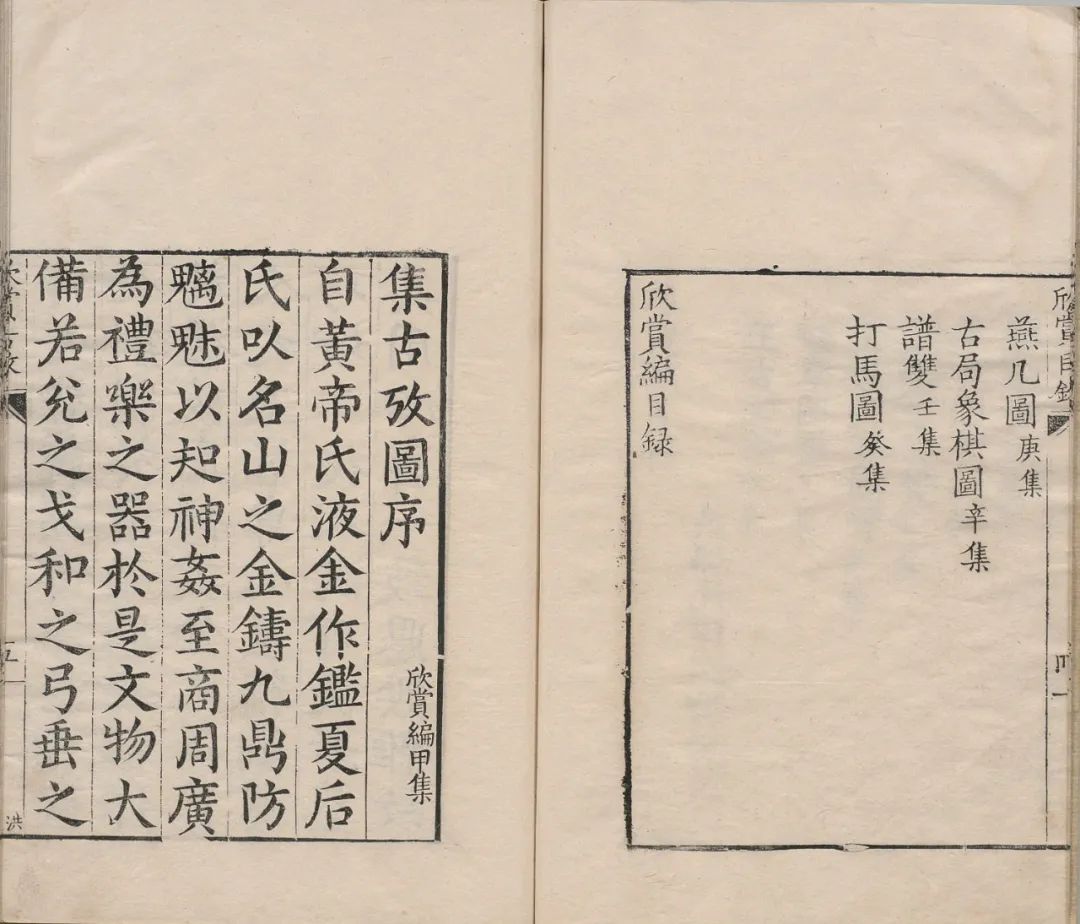 欣賞目錄
燕几圖庚集
古局象棋圖辛集
譜雙壬集
打馬圖癸集
欣賞編目録
四
一
集古攷圖序
欣賞編甲集
自黃帝氏液金作鑑夏后
氏㕥名山之金鑄九鼎防
魑魅以知神姦至商周廣
為禮樂之器於是文物大
備若兊之戈和之弓垂之
五
洪